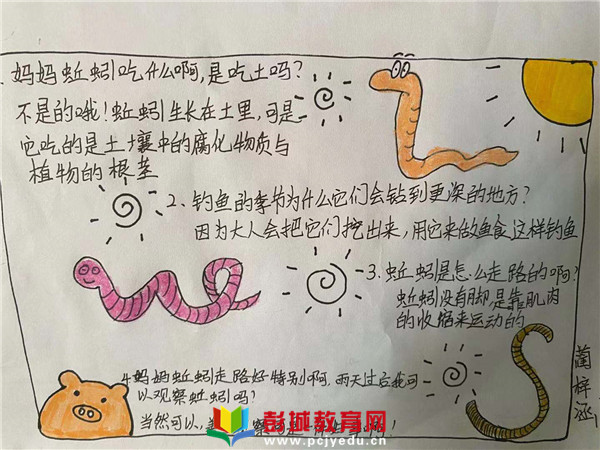 1、妈妈蚯蚓吃什么啊，是吃土吗？
不是的哦！蚯蚓生长在土里，可是
它吃的是土壤中的腐化物质与
植物的根茎
2、钓鱼的季节为什么它们会钻到更深的地方？
因为大人会把它们挖出来，用它来做鱼食这样钓鱼
3、蚯蚓是怎么走路的啊？
蚯蚓没有脚，是靠肌肉
的收缩来运动的
4、妈妈蚯蚓走路好特别啊，雨天过后我可
以观察蚯蚓吗？
当然可以，
梓涵
彭城教育网
www.pcjyedu.cn